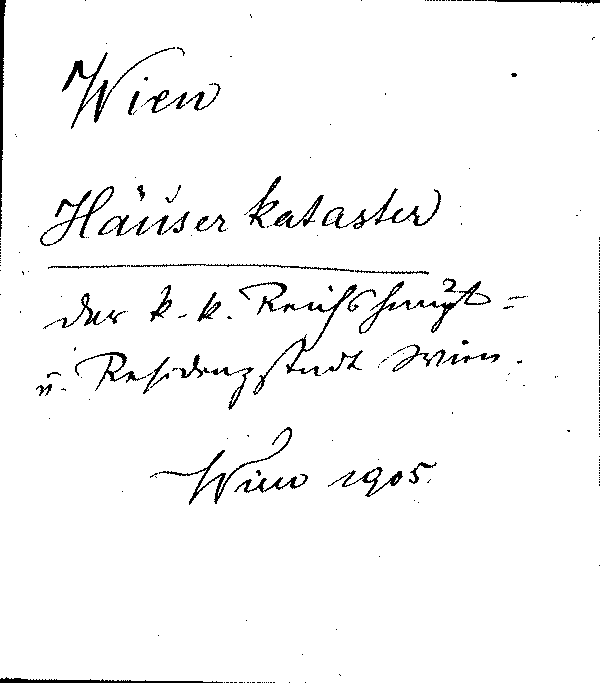 Wien
Häuserkataster
der k. k. Reichshaupt-
u. Residenzstadt Wien.
Wien 1905.